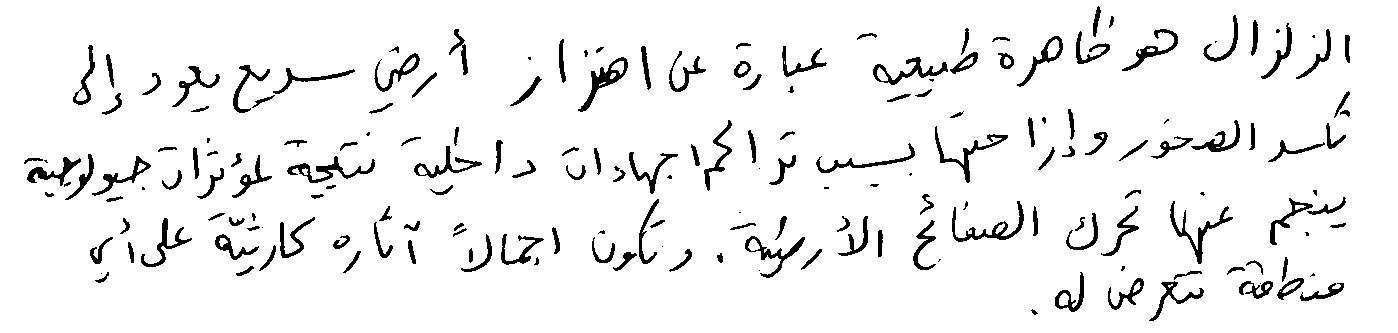 الزلزال هو ظاهرة طبيعية عبارة عن اهتزاز أرضي سريع يعود إلى
تكسر الصخور وإزاحتها بسبب تراكم اجهادات داخلية نتيجة لمؤثرات جيولوجية
ينجم عنها تحرك الصفائح الأرضية. وتكون اجمالاً آثاره كارثيّة على أي
منطقة تتعرض له.